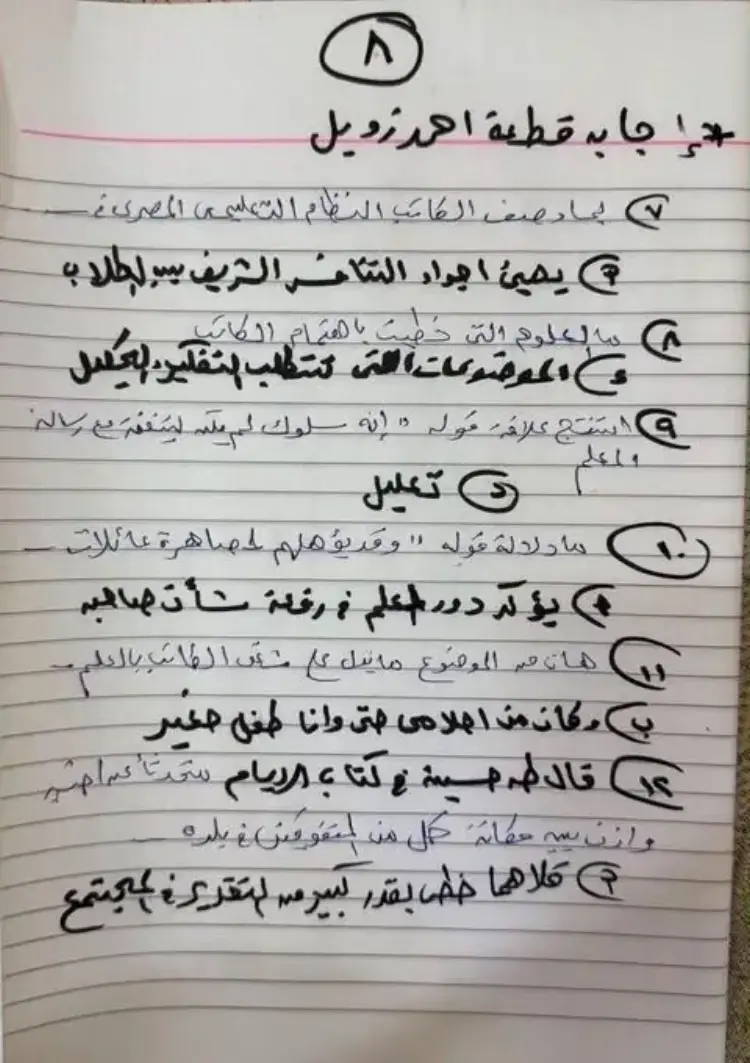 ٨
* إجابه قطعة احمد زويل
٧) بما وصف الكاتب النظام التعليمى المصرى فى ــــ
ج) يهيئ اجواء التنافس الشريف بين الطلاب
٨) ما العلوم التى حظيت باهتمام الكاتب
ء) الموضوعات التى تتطلب التفكير والتحليل
٩) استنتج علاقة قوله " إنه سلوك لم يكن ليتفق مع رسالة
المعلم
د) تعليل
١٠) ما دلالة قوله " وقد يؤهلهم لمصاهرة عائلات ــــ
يؤكد دور العلم فى رفعة شأن صاحبه
١١) هات من الموضوع ما يدل على شغف الكاتب بالعلم ــ
ب) وكان من احلامى حتى وانا طفل صغير
١٢) قال طه حسين فى كتاب الايام متحدثا عن
وازن بين مكانة كل من المتفوقين فى بلده ــــ
ج) كلاهما حظى بقدر كبير من التقدير فى المجتمع